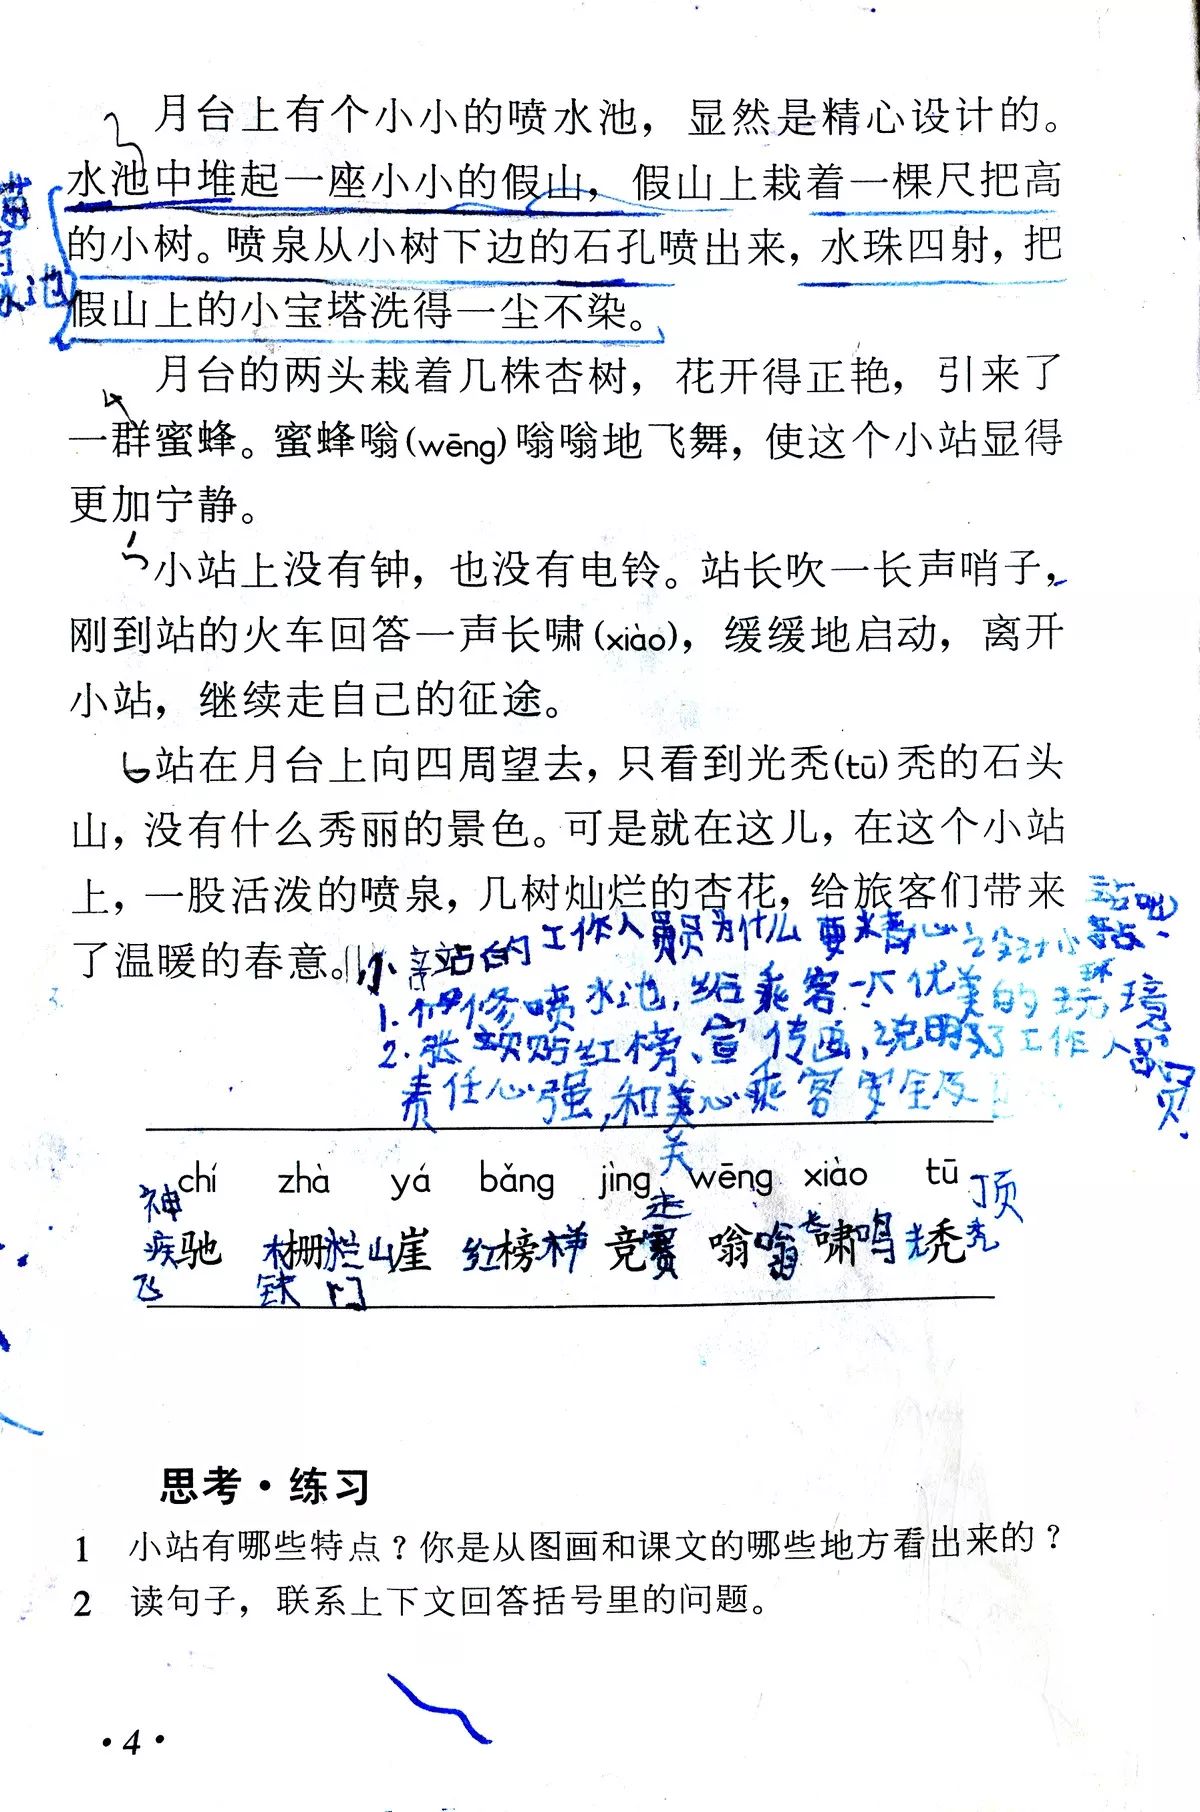 月台上有个小小的喷水池，显然是精心设计的。
水池中堆起一座小小的假山，假山上栽着一棵尺把高
的小树。喷泉从小树下边的石孔喷出来，水珠四射，把
假山上的小宝塔洗得一尘不染。
月台的两头栽着几株杏树，花开得正艳，引来了
一群蜜蜂。蜜蜂嗡(wēng)嗡嗡地飞舞，使这个小站显得
更加宁静。
5
小站上没有钟，也没有电铃。站长吹一长声哨子，
刚到站的火车回答一声长啸(xiào)，缓缓地启动，离开
小站，继续走自己的征途。
6站在月台上向四周望去，只看到光秃(tū)秃的石头
山，没有什么秀丽的景色。可是就在这儿，在这个小站
上，一股活泼的喷泉，几树灿烂的杏花，给旅客们带来
了温暖的春意。
站的工作人员为什么要精心设计小站呢
1. 修喷水池，给乘客一个优美的环境。
2. 张贴红榜、宣传画，说明了工作人员
责任心强，和关心乘客安全
chí zhà yá bǎng jìng wēng xiào tū
神 走 顶
疾驰 木栅栏 山崖 红榜样 竞赛 嗡嗡 长啸鸣 光秃秃
飞 铁 门
思考·练习
1 小站有哪些特点？你是从图画和课文的哪些地方看出来的？
2 读句子，联系上下文回答括号里的问题。
·4·